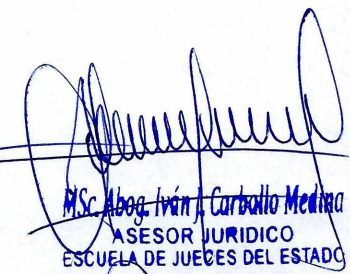 MSc. Abog. Iván J. Carballo Medina
ASESOR JURIDICO
ESCUELA DE JUECES DEL ESTADO